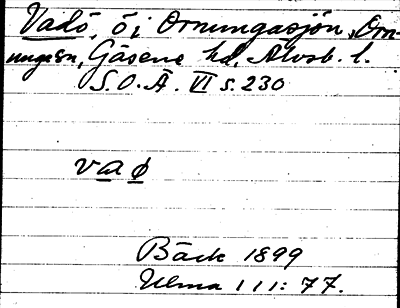 Vadö, ö i Ornungasjön, Orn-
unga sn, Gäsene hd, Älvsb. l.
S.O.Ä. VI s. 230
vaø
Bäck 1899
Ulma 111:77.